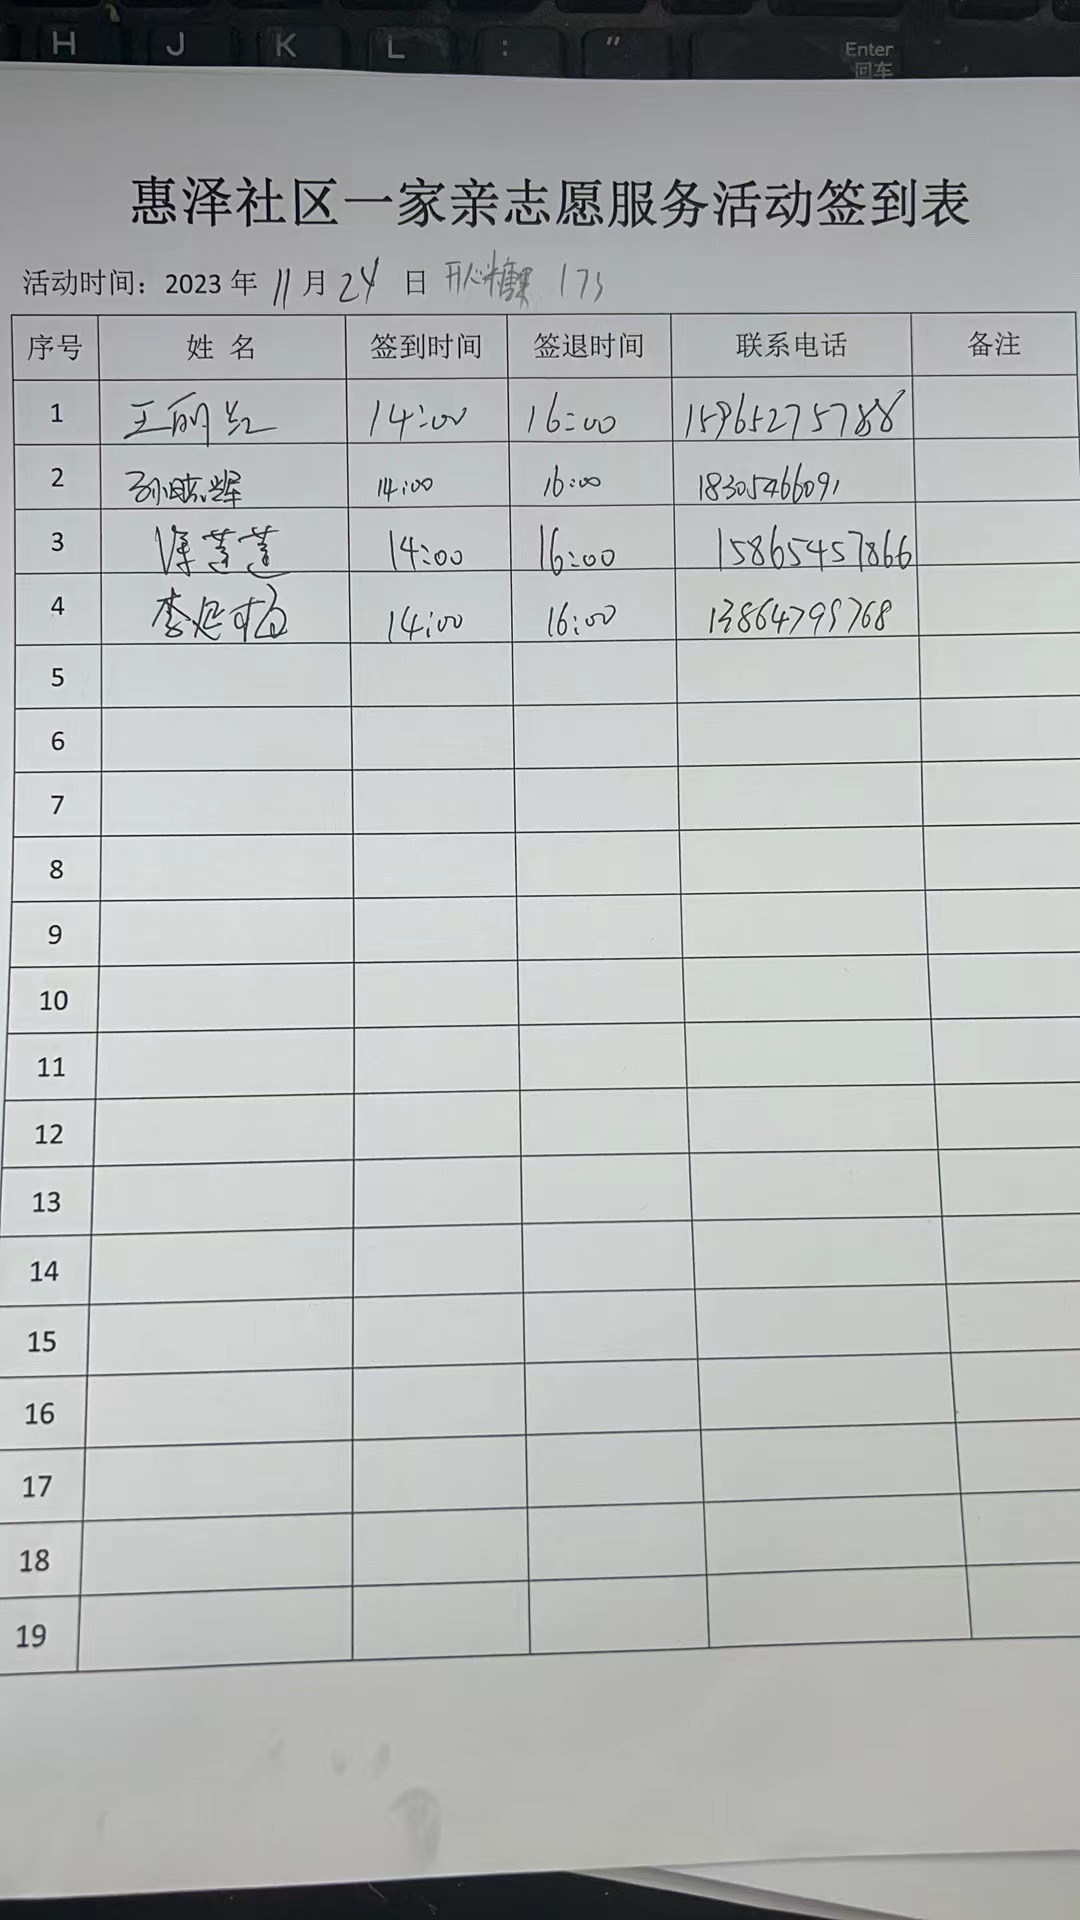 H J K L : " Enter
回车
惠泽社区一家亲志愿服务活动签到表
活动时间：2023 年 11 月 24 日 开心糖果 173
序号 姓 名 签到时间 签退时间 联系电话 备注
1 王丽红 14:00 16:00 15965275788
2 孙晓辉 14:00 16:00 18305466091
3 莲莲 14:00 16:00 15865457866
4 李延 14:00 16:00 13864799768
5
6
7
8
9
10
11
12
13
14
15
16
17
18
19